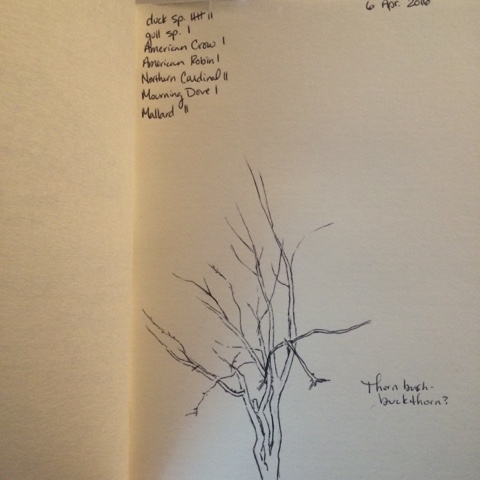 6 Apr. 2016
duck sp. 卌 II
gull sp. I
American Crow I
American Robin I
Northern Cardinal II
Mourning Dove I
Mallard II
Thorn bush-
buckthorn?